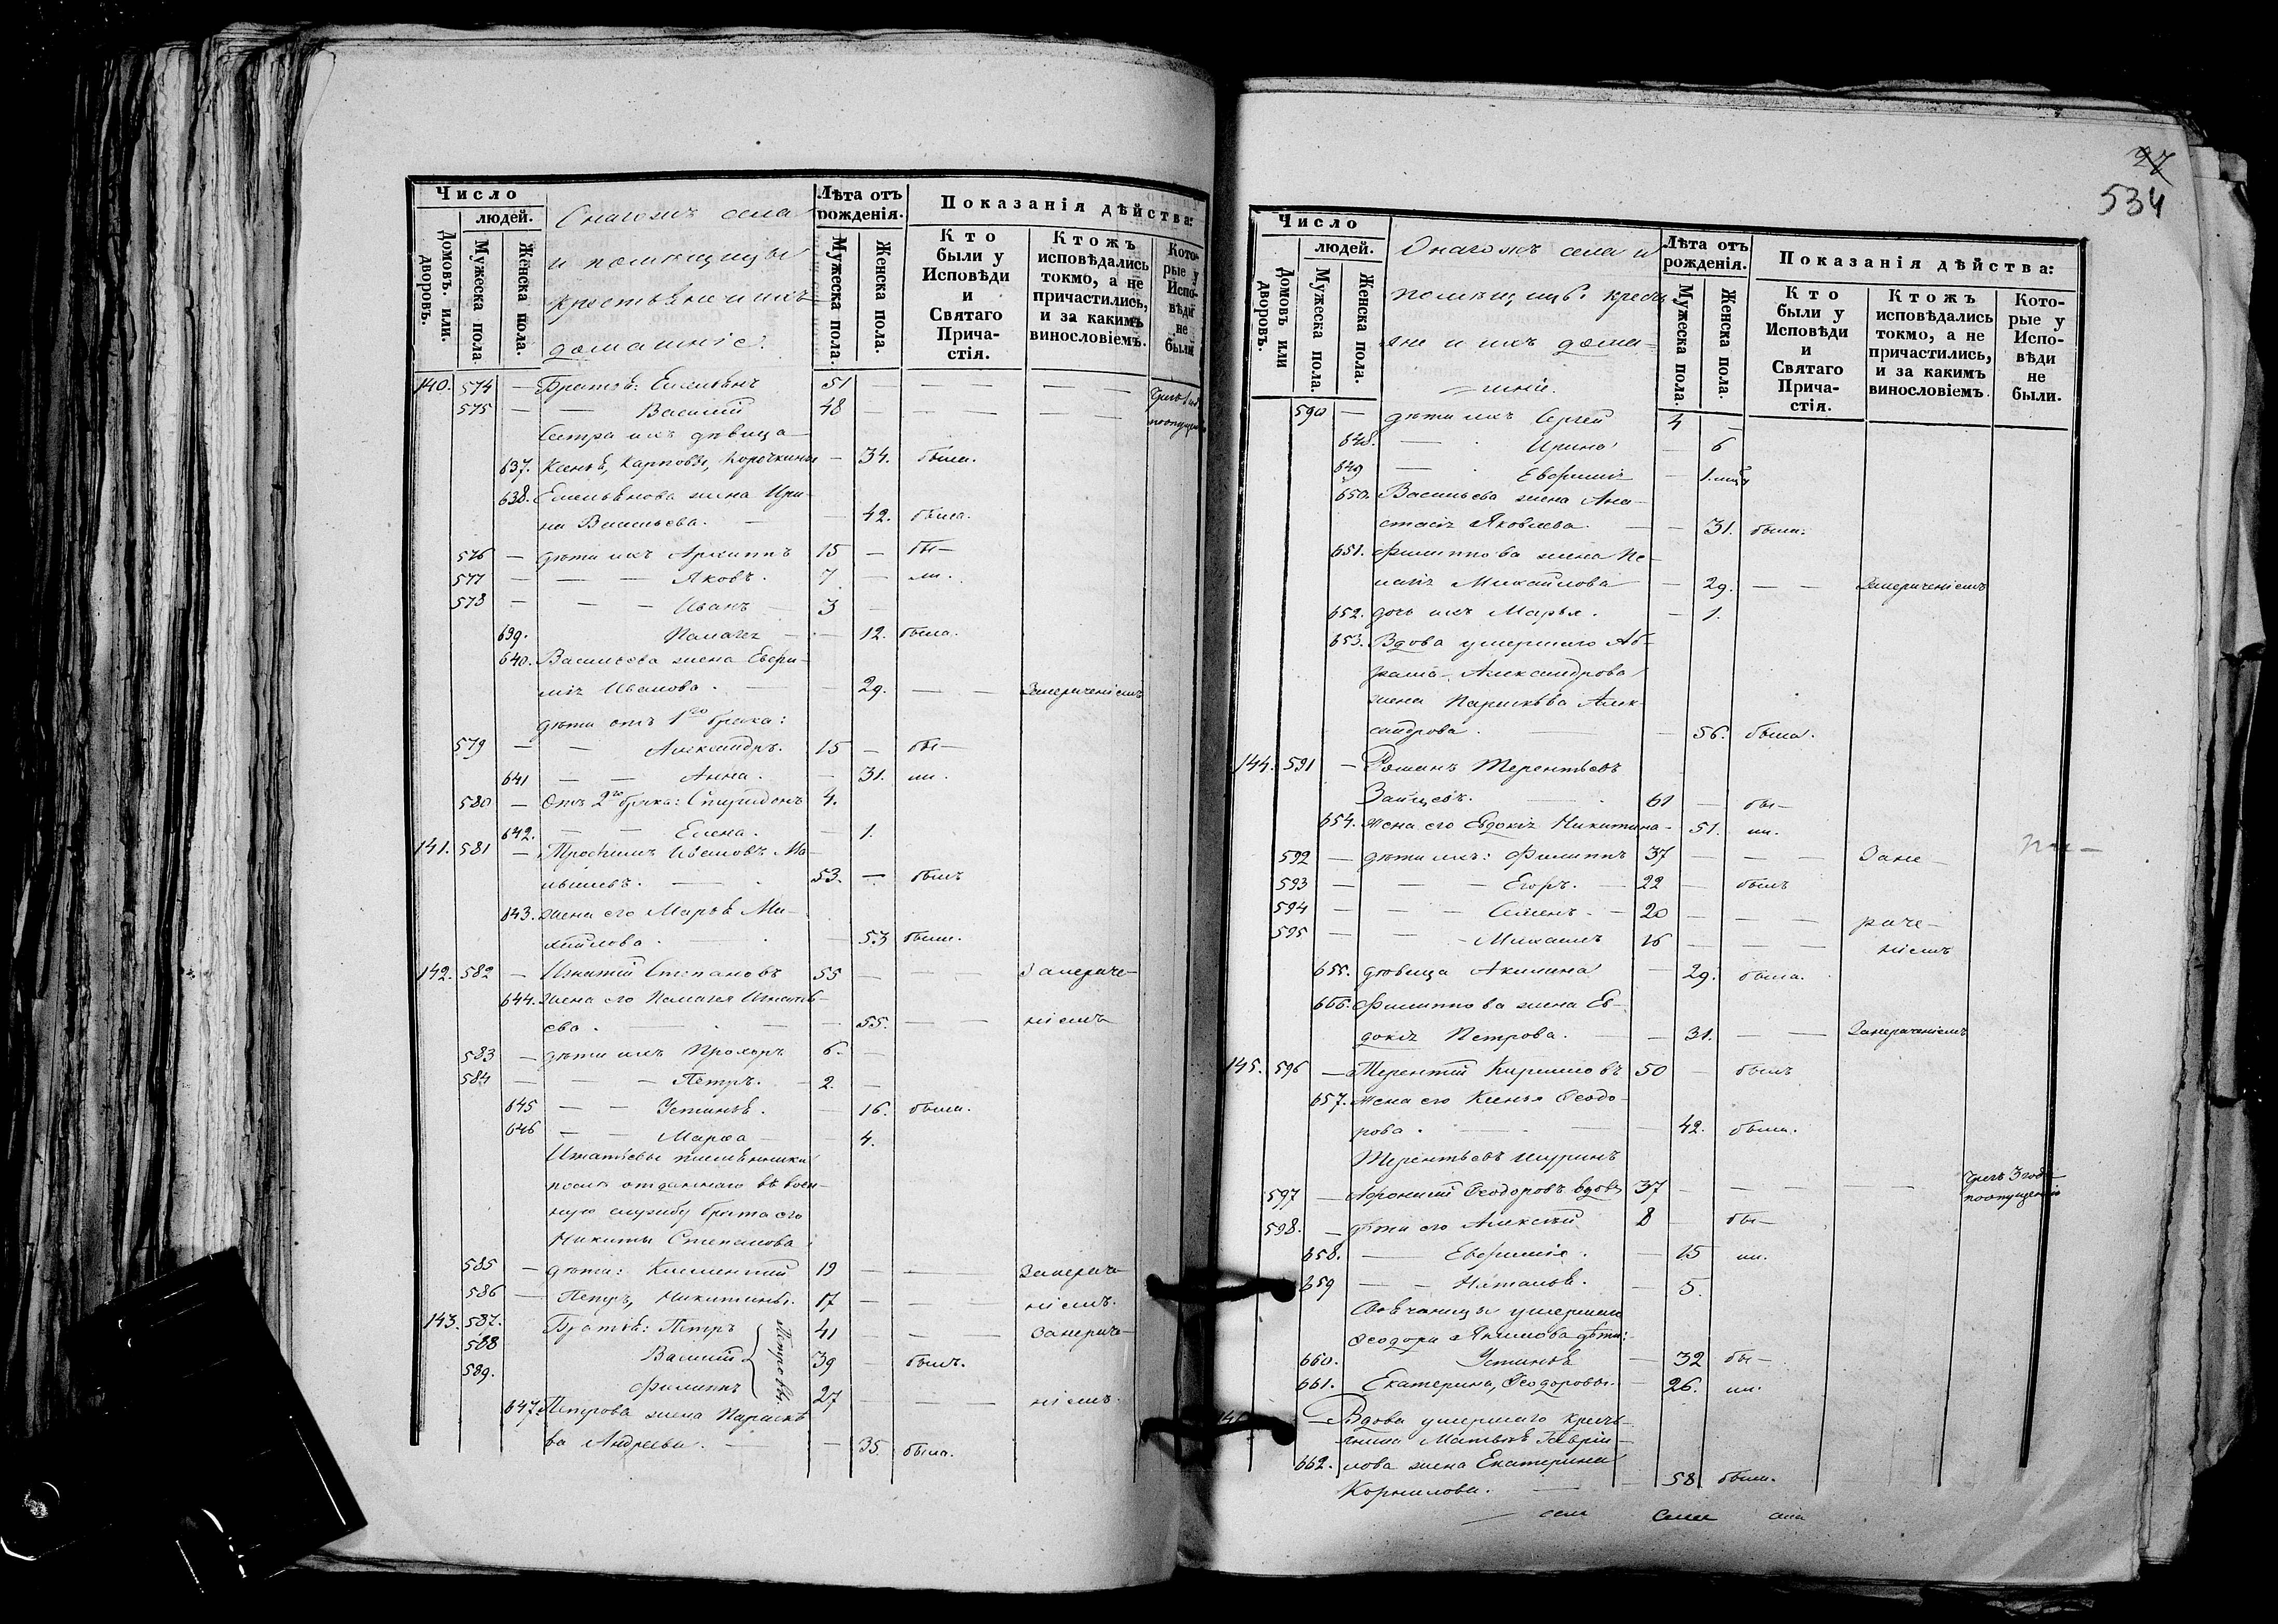 Число
людей.
Домовъ или дворовъ.
Мужеска пола.
Женска пола.
села
и помѣщицы
крестьяне и ихъ
домашніе.
Лѣта отъ рожденія.
Мужеска пола.
Женска пола.
Показанія дѣйства:
Кто были у Исповѣди и Святаго Причастія.
Ктожъ исповѣдались токмо, а не причастились, и за какимъ винословіемъ.
Которые у Исповѣди не были
140. 574 — Братья: Емельянъ 51 — — — —
575 — — Василій 48 — — — —
Сестра ихъ дѣвица
637. Ксенья, Карповы, — 34. была.
638. Емельянова жена Ири-
на Васильева. — — 42. была.
576 — дѣти ихъ Архиппъ 15 — бы-
577 — — — Яковъ. 7 — ли.
578 — — — Иванъ 3 —
639. Палагея — 12. была.
640. Васильева жена Евфи-
мія Иванова. — — 29. — — Занераченіемъ
дѣти отъ 1го брака:
579 — — Александръ. 15 — бы-
641 — — Анна. — 31. ли.
580 — Отъ 2го брака: Спиридонъ 4.
642. — — Елена. — 1.
141. 581 — Трофимъ Ивановъ
53. — былъ
643. жена его Марья Ми-
хайлова. — — 53 была.
142. 582 — Игнатій Степановъ 55 — — — Занераче-
644. жена его Палагея Игнать-
ева. — — — 55. — — ніемъ
583 — дѣти ихъ Прохоръ 6. —
584 — — — Петръ. — 2. —
645 — — Устинья. — 16. была.
646 — — Марѳа — — 4.
Игнатьевы племянники
послѣ отданнаго въ воен-
ную службу брата его
Никиты Степанова
585 — дѣти: Климентій 19 — — — Занераче-
586 — Петръ, Никитины. 17 — — — ніемъ.
143. 587. Братья: Петръ 41 — — — Занераче-
588 Василій 39 — былъ.
589. Филиппъ 27 — — — ніемъ.
Петровы.
647. Петрова жена Параске-
ва Андреева. — — 35. была.
27
534
Число
людей.
Домовъ или дворовъ.
Мужеска пола.
Женска пола.
Онагожъ села и
помѣщицы крестья-
яне и ихъ дома-
шніе.
Лѣта отъ рожденія.
Мужеска пола.
Женска пола
Показанія дѣйства:
Кто были у Исповѣди и Святаго Причастія.
Ктожъ исповѣдались токмо, а не причастились, и за какимъ винословіемъ.
Которые у Исповѣди не были.
590 — дѣти ихъ Сергей 4 —
648. — Ирина — 6
649 — Евфимія — 1.
650. Васильева жена Ана-
стасія Яковлева. — — 31. была.
651. Филиппова жена Пе-
лагія Михайлова — 29. — — Занераченіемъ
652. дочь ихъ Марья. — 1.
653. Вдова умершаго Аб-
рама Александрова
жена Параскева Алек-
сандрова. — — 56. была.
144. 591 — Романъ Терентьевъ
Зайцевъ. — 61 — бы-
654. Жена его Евдокія Никитина — 51. ли.
592 — дѣти ихъ: Филиппъ 37 — — — Зане-
593 — — — Егоръ. — 22 — былъ
594 — — — Семенъ. — 20 — — — раче-
595 — — — Михаилъ 16 — — — ніемъ
655. дѣвица Акилина — 29. была.
656. Филиппова жена Ев-
докія Петрова. — — 31. — — Занераченіемъ
145. 596 — Терентій Кирилловъ 50 — былъ
657. Жена его Ксенья Ѳеодо-
рова. — — — 42. была.
Терентьевъ шуринъ
597 — Ѳеодоровъ вдовъ 37 — — — — чрезъ 3 года
598. — дѣти его Алексѣй 8 — бы-
658. — Евфимія. — 15 ли.
659 — — Наталья. — 5.
умершаго
Ѳеодора Якимова дѣти:
660. Устинья — 32 бы-
661. Екатерина, Ѳеодоровы. — 26. ли.
— Вдова умершаго крестья-
янина Матвѣя Гаври-
662. лова жена Екатерина
Корнилова. — — 58 была.